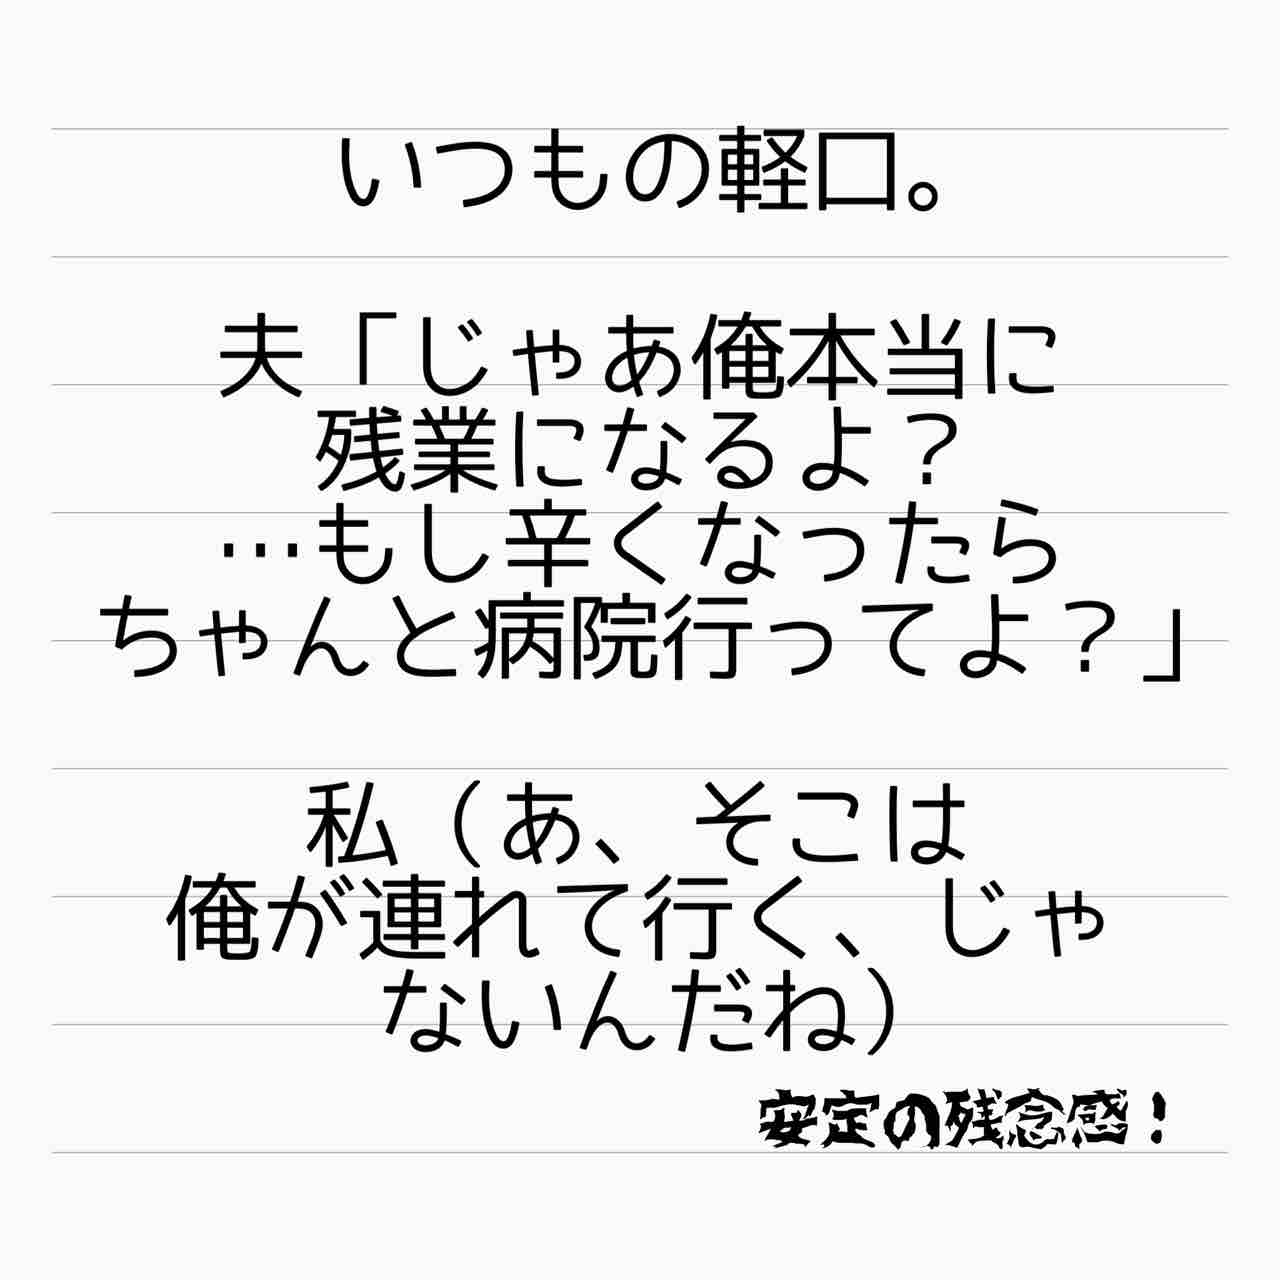 いつもの軽口。
夫「じゃあ俺本当に
残業になるよ？
…もし辛くなったら
ちゃんと病院行ってよ？」
私（あ、そこは
俺が連れて行く、じゃ
ないんだね）
安定の残念感！